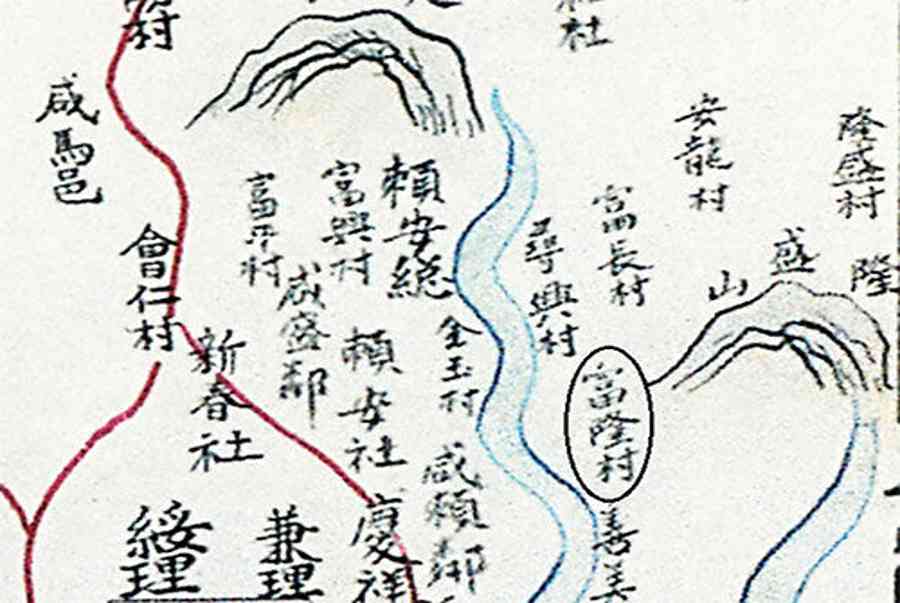 隆盛村
安龍村
社
村
隆
盛
山
富長村
善美
富隆村
尋興村
金玉村
咸頼鄰
頼安總
頼安社
慶祥
富興村
咸盛鄰
兼理
富平村
新春社
綏理
會仁村
咸馬邑